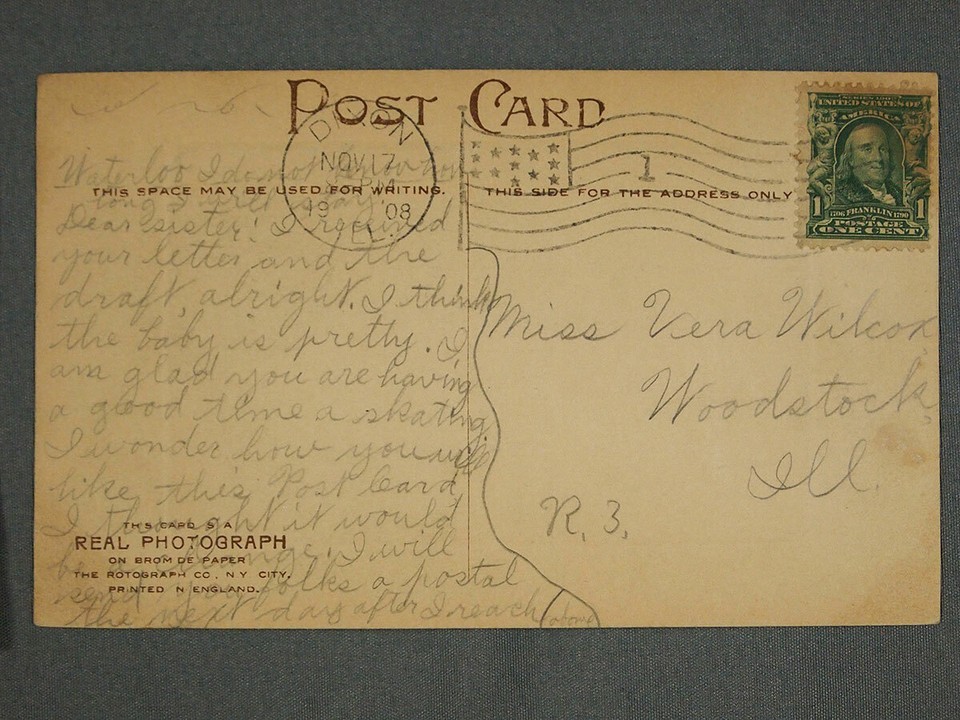 POST CARD
DIXON
NOV 17
1908
ILL.
1
SERIES 1902
UNITED STATES OF
AMERICA
1706 FRANKLIN 1790
1 POSTAGE 1
ONE CENT
Waterloo I do not know how
long I will stay.
THIS SPACE MAY BE USED FOR WRITING.
THIS SIDE FOR THE ADDRESS ONLY
Dear sister: I received
your letter and the
draft, alright. I think
the baby is pretty. I
am glad you are having
a good time a skating
I wonder how you will
like this Post Card
I thought it would
be a change. I will
send you folks a postal
the next day after I reach (above)
THIS CARD IS A
REAL PHOTOGRAPH
ON BROMIDE PAPER
THE ROTOGRAPH CO., N.Y. CITY.
PRINTED IN ENGLAND.
Miss Vera Wilcox
Woodstock
Ill.
R. 3.